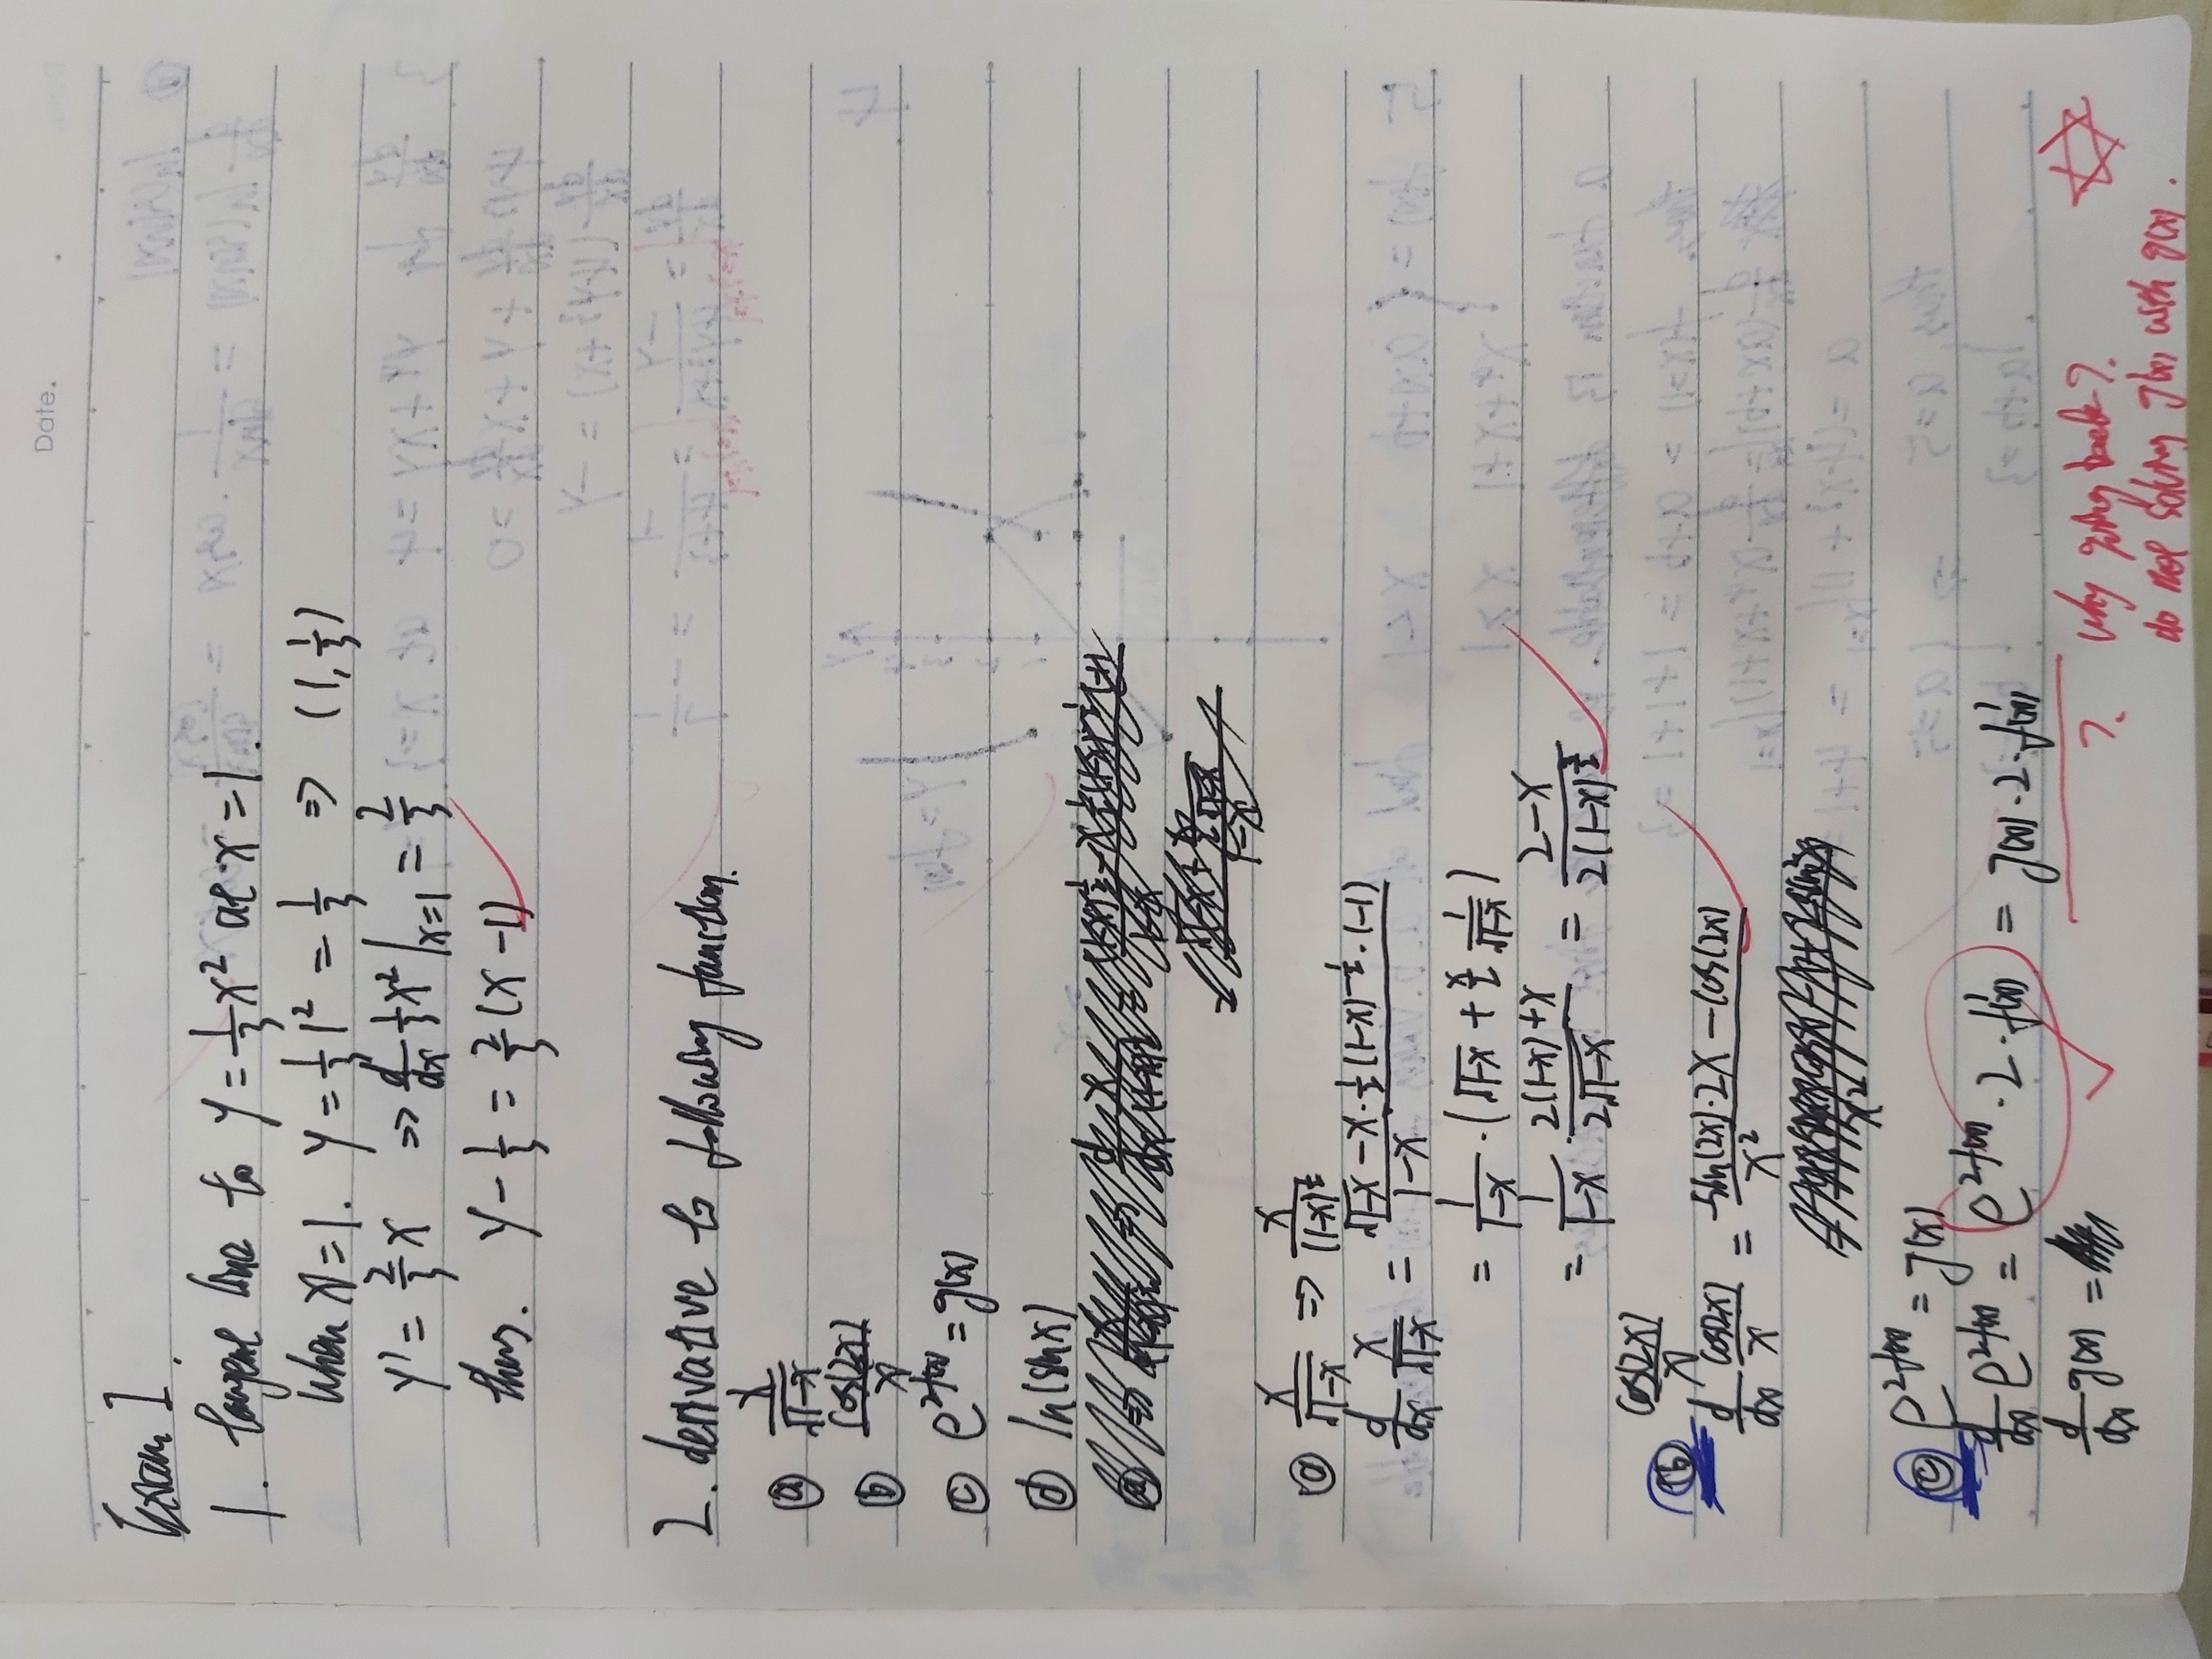 Date.
Exam 1.
1. tangent line to y = 1/3 x² at x = 1.
when x = 1. y = 1/3 1² = 1/3 ⇒ (1, 1/3)
y' = 2/3 x ⇒ d/dx 1/3 x² |x=1 = 2/3
thus. y - 1/3 = 2/3 (x - 1)
2. derivative to following function.
ⓐ x/√(1-x)
ⓑ cos(2x)/x
ⓒ e^(2f(x)) = g(x)
ⓓ ln(sinx)
ⓐ x/√(1-x) ⇒ x/(1-x)^(1/2)
d/dx x/√(1-x) = (√(1-x) - x · 1/2 (1-x)^(-1/2) · (-1))/(1-x)
= 1/(1-x) · (√(1-x) + x/2 1/√(1-x))
= 1/(1-x) · (2(1-x)+x)/(2√(1-x)) = (2-x)/(2(1-x)^(3/2))
ⓑ cos(2x)/x
d/dx cos(2x)/x = (-sin(2x)·2x - cos(2x))/x²
ⓒ e^(2f(x)) = g(x)
d/dx e^(2f(x)) = e^(2f(x)) · 2 · f'(x) = g(x) · 2 · f'(x)
d/dx g(x) =
? why going back?
do not solving g(x) with g(x).